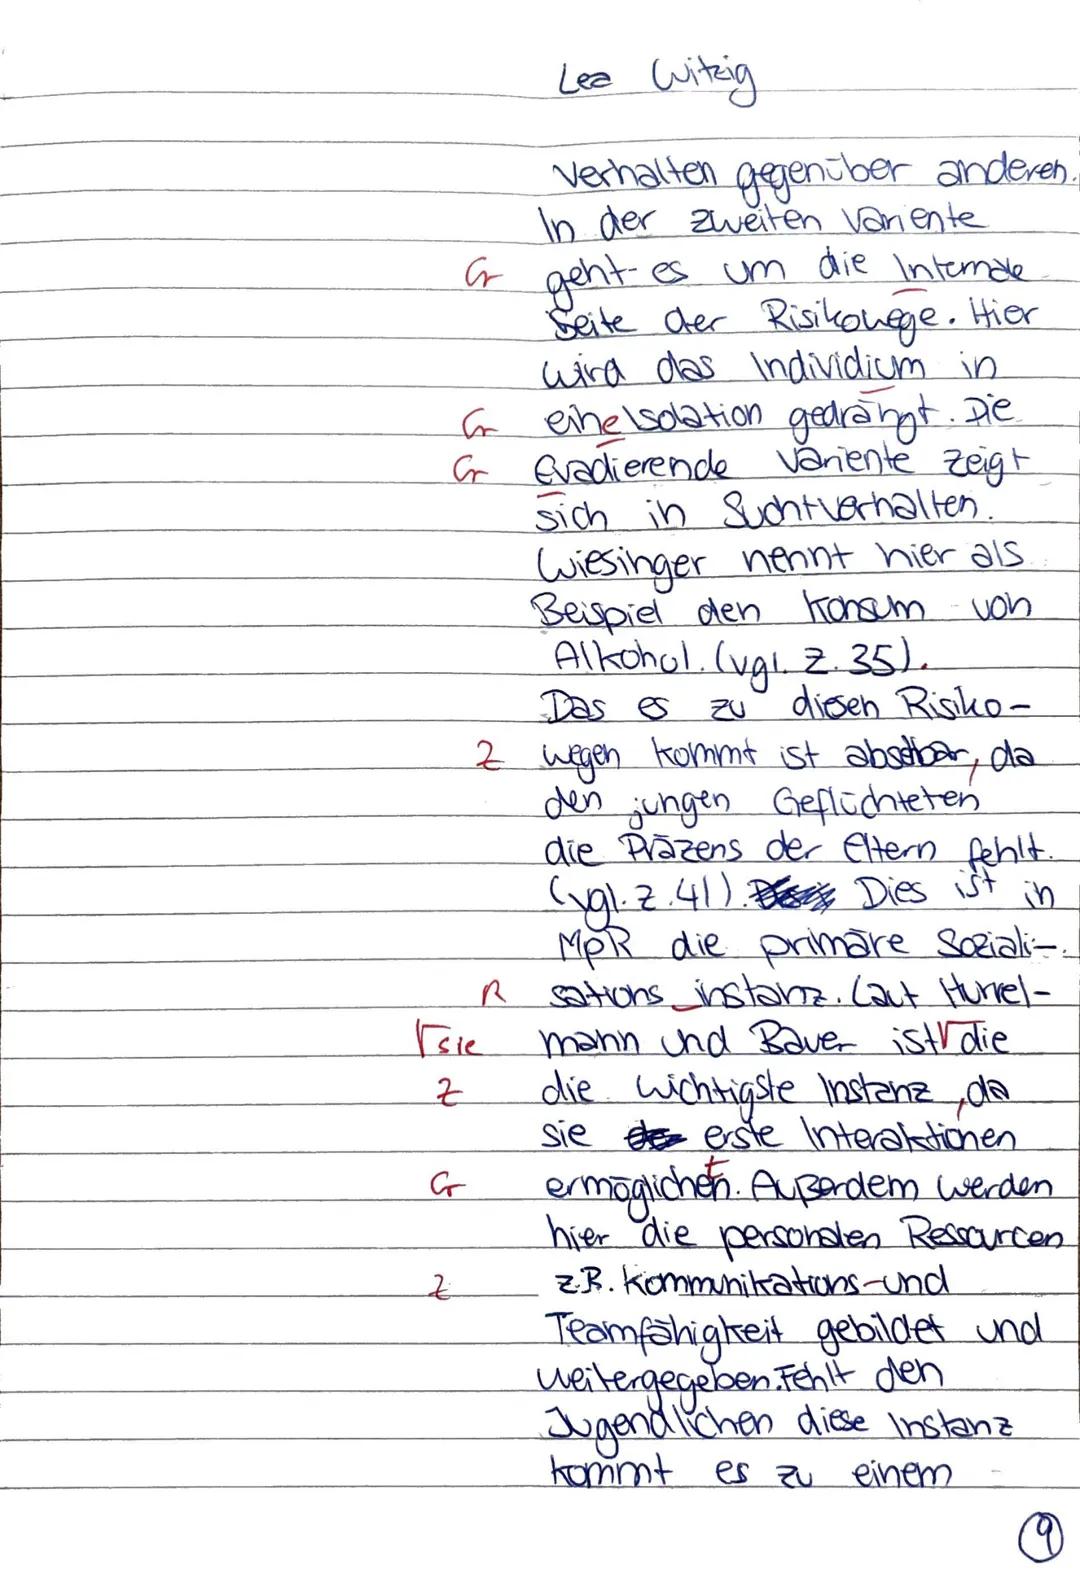 Lea Witzig
Verhalten gegenüber anderen.
In der zweiten Variente
Gr geht es um die Internale
Seite der Risikowege. Hier
wird das Individium in
Gr eine Isolation gedrängt. Die
Gr evadierende Variente zeigt
sich in Suchtverhalten.
Wiesinger nennt hier als
Beispiel den Konsum von
Alkohol. (vgl. Z. 35).
Das es zu diesen Risiko-
Z wegen kommt ist absehbar, da
den jungen Geflüchteten
die Präzens der Eltern fehlt.
(vgl. Z. 41). Dies ist in
MpR die primäre Soziali-
R sations instanz. Laut Hurrel-
√sie mann und Bauer ist√ die
Z die wichtigste Instanz, da
sie erste Interaktionen
Gr ermöglichen. t Außerdem werden
hier die personalen Ressourcen
Z z.B. Kommunikations-und
Teamfähigkeit gebildet und
weitergegeben. Fehlt den
Jugendlichen diese Instanz
kommt es zu einem
9